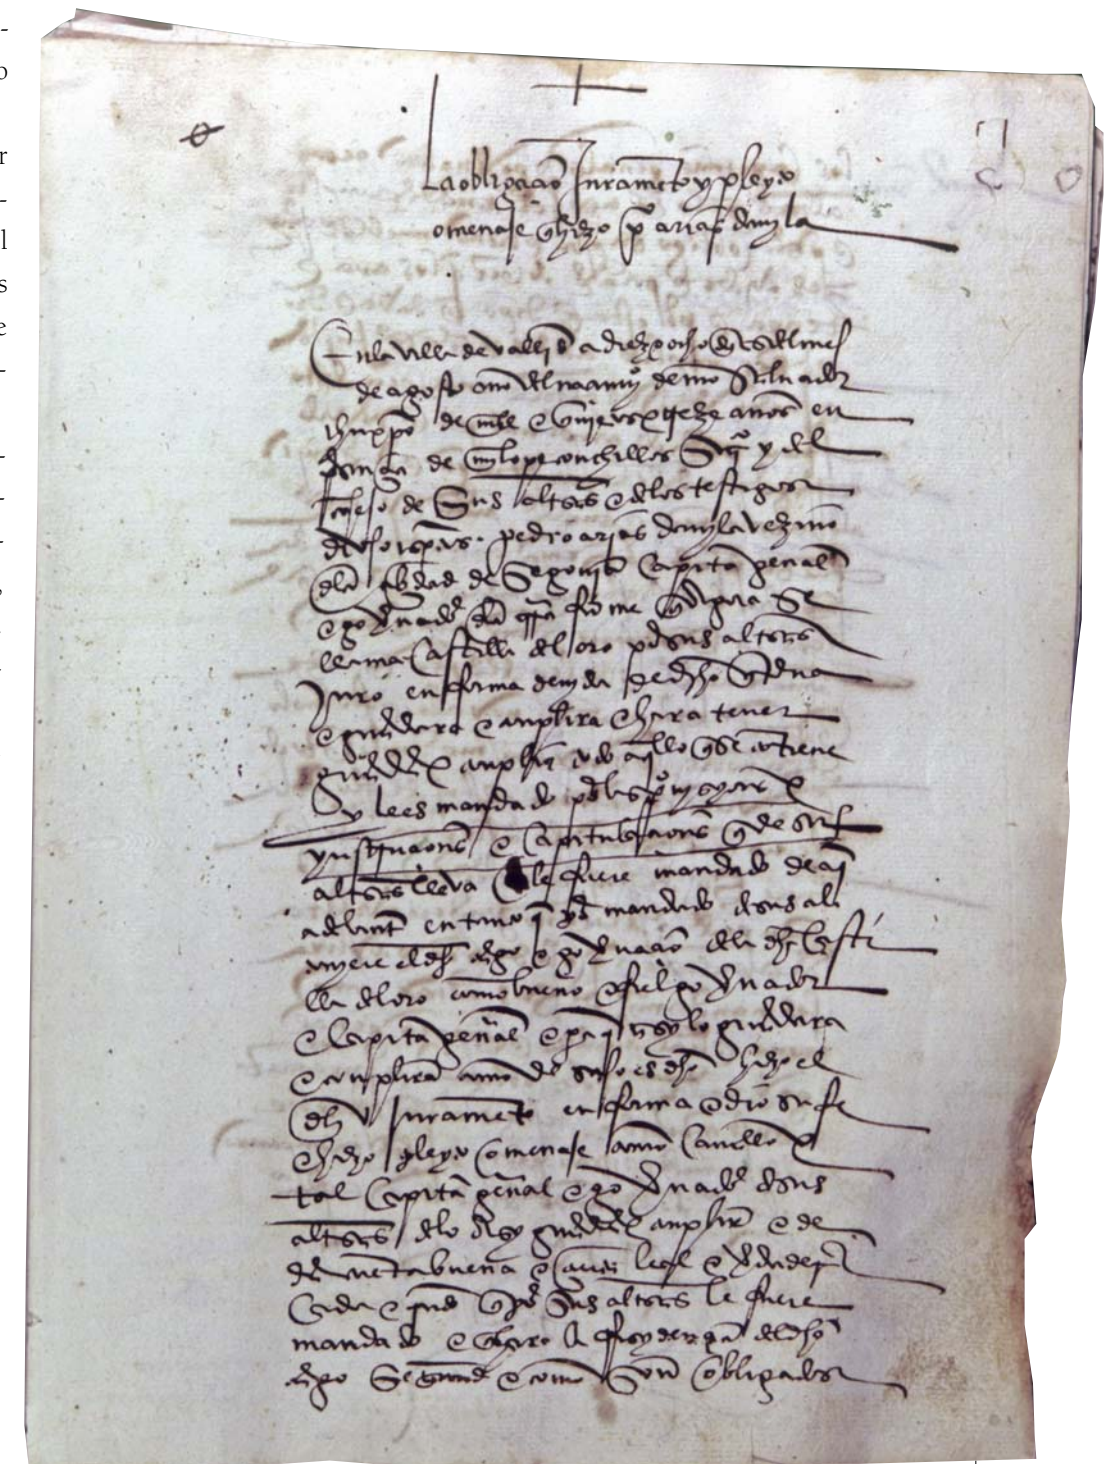 La obligaçió Juramēto y pleyto
omenaje q̃ hizo pº arias davyla
En la villa de vallid a diez y ocho dias del mes
de agosto año del nasçimyº de nrō Saluador
ihuxpō de mill e quīos y treze años en
presençia de my lope conchillos Secrº y del
cōsejo de Sus altezas e de los testigos
de yuso escriptos pedro arias davyla vezino
de la çibdad de Segovia Capitā general
e governador de la trrā firme q̃ agora Se
llama Castilla del oro por sus altezas
Juró en forma devyda de derecho q̃ terna
e guardara e conplira e hara tener
guardar e conplir todo aquello q̃ se contiene
y le es mandado por las provysiones e
ynstruçiones e Capitulaçiones q̃ de sus
altezas lleva e le fuere mandado de aq̃
adelante en tanto q̃ por mandado de sus al
tuviere el dicho cargo e governaçió de la dicha Casti
lla del oro como bueno e fiel governador
e Capitā general e para q̃ asy lo guardara
e conplirá como de suso es dicho hizo el
dicho Juramēto en forma e dio su fe
e hizo pleyto omenaje como Cavallero e
tal Capitā general e governador de sus
altezas de lo asy guardar e conplir e de
dar cuenta buena e leal e verdadera
Cada e quando q̃ por Sus altezas le fuere
mandado e q̃ hara la Resydençia del dicho
cargo Segund e como Son obligados